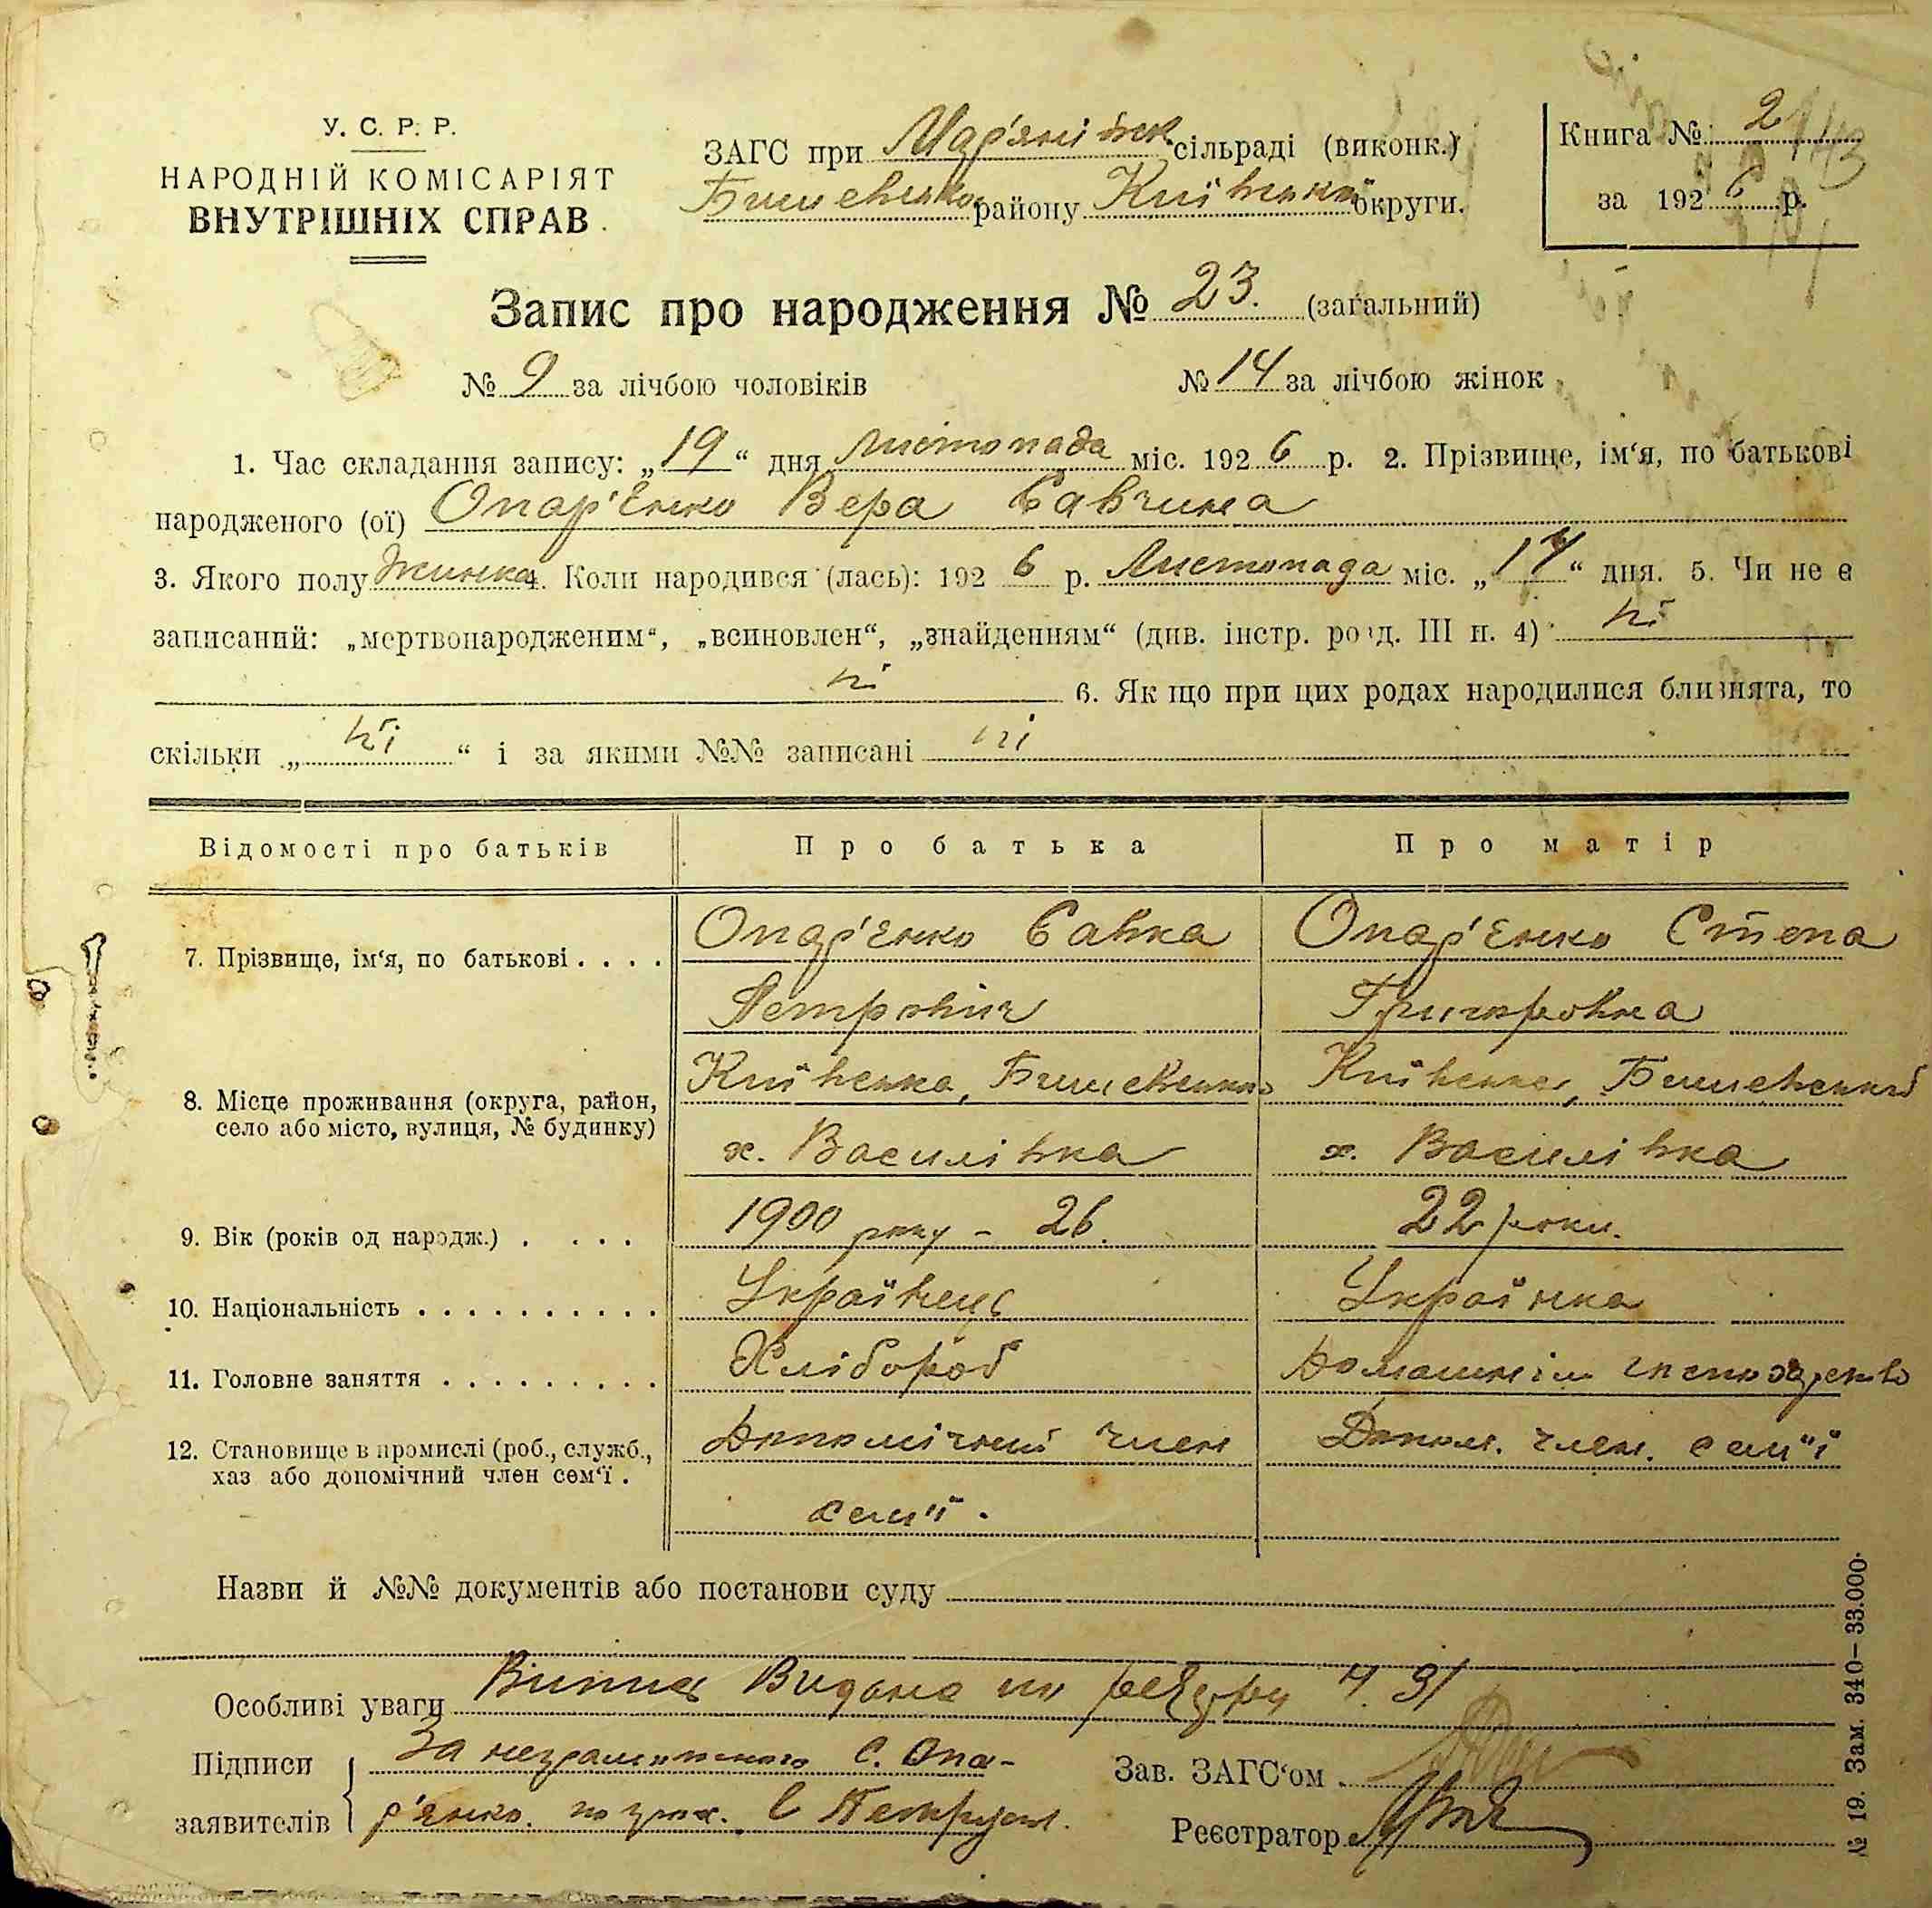 У. С. Р. Р.
НАРОДНІЙ КОМІСАРІЯТ
ВНУТРІШНІХ СПРАВ
ЗАГС при Мар'янівск. сільраді (виконк.)
Бишевсько району Київської округи.
Книга № 2
за 1926 р.
Запис про народження № 23. (загальний)
№ 9 за лічбою чоловіків № 14 за лічбою жінок
1. Час складання запису: „19“ дня листопада міс. 1926 р. 2. Прізвище, ім‘я, по батькові
народженого (ої) Опар'енко Вера Савчина
3. Якого полу жинка 4. Коли народився (лась): 1926 р. Листопада міс. „17“ дня. 5. Чи не є
записаний: „мертвонародженим“, „всиновлен“, „знайденням“ (див. інстр. розд. III п. 4) ні
ні 6. Як що при цих родах народилися близнята, то
скільки „ні“ і за якими №№ записані ні
Відомості про батьків Про батька Про матір
7. Прізвище, ім‘я, по батькові . . . . Опар'енко Савка Опар'енко Степа
Петрович Григоровна
8. Місце проживання (округа, район, Київська, Бишевський Київська, Бишевський
село або місто, вулиця, № будинку) х. Василівка х. Василівка
9. Вік (років од народж.) . . . . 1900 року - 26. 22 роки.
10. Національність . . . . . . . . . . . Українець Українка
11. Головне заняття . . . . . . . . . Хлібороб Домашнім господарство
12. Становище в промислі (роб., служб., Допомічний член Допом. член. сем"ї
хаз або допомічний член сем‘ї . сем"ї.
Назви й №№ документів або постанови суду
Особливі уваги Випис Видана по 31
Підписи За неграмотного С. Опа-
заявителів р'енко. С Петрук
Зав. ЗАГС‘ом
Реєстратор
№ 19. Зам. 340—33.000.